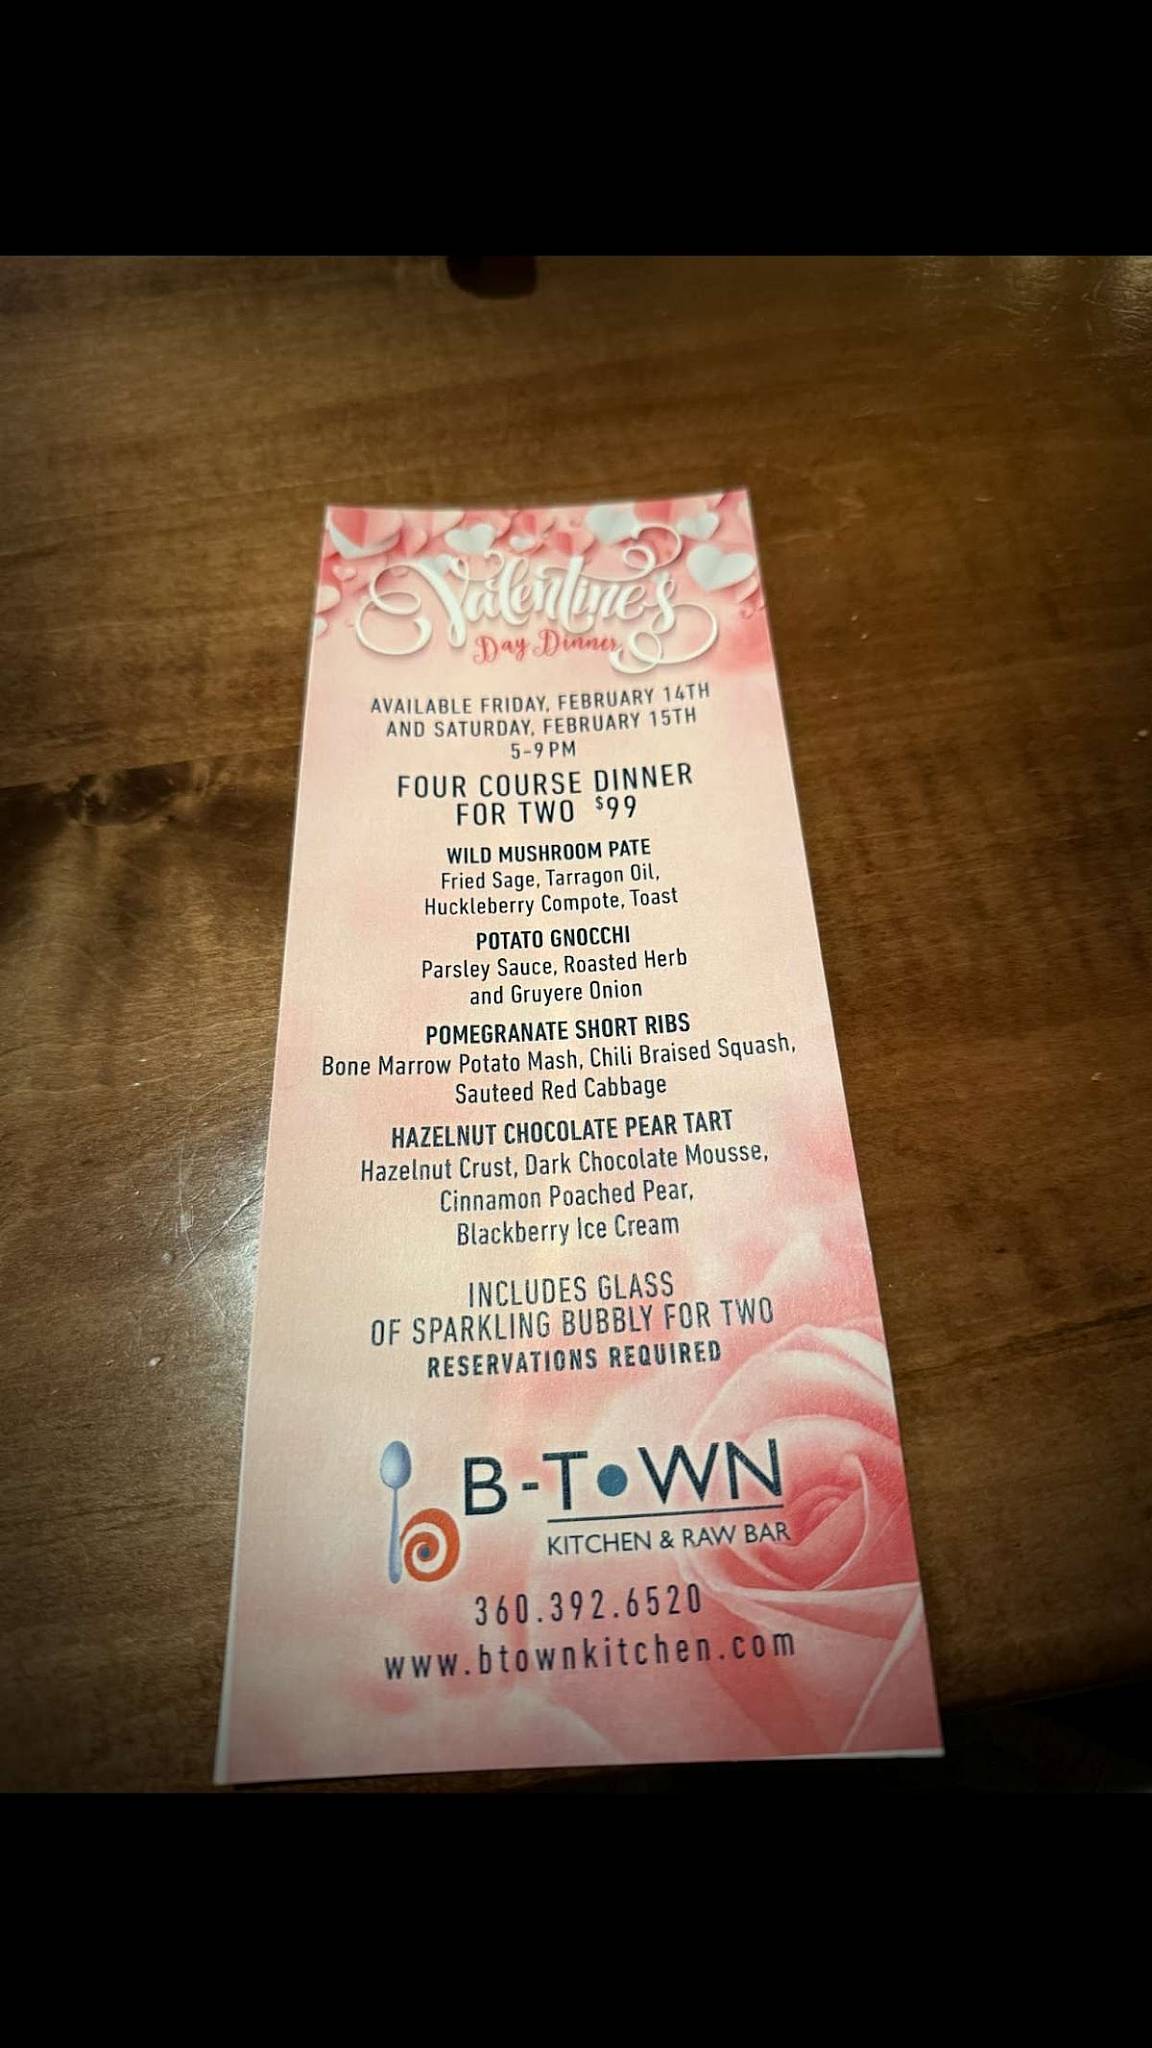 Valentine's
Day Dinner
AVAILABLE FRIDAY, FEBRUARY 14TH
AND SATURDAY, FEBRUARY 15TH
5-9 PM
FOUR COURSE DINNER
FOR TWO $99
WILD MUSHROOM PATE
Fried Sage, Tarragon Oil,
Huckleberry Compote, Toast
POTATO GNOCCHI
Parsley Sauce, Roasted Herb
and Gruyere Onion
POMEGRANATE SHORT RIBS
Bone Marrow Potato Mash, Chili Braised Squash,
Sauteed Red Cabbage
HAZELNUT CHOCOLATE PEAR TART
Hazelnut Crust, Dark Chocolate Mousse,
Cinnamon Poached Pear,
Blackberry Ice Cream
INCLUDES GLASS
OF SPARKLING BUBBLY FOR TWO
RESERVATIONS REQUIRED
B-TOWN
KITCHEN & RAW BAR
360.392.6520
www.btownkitchen.com